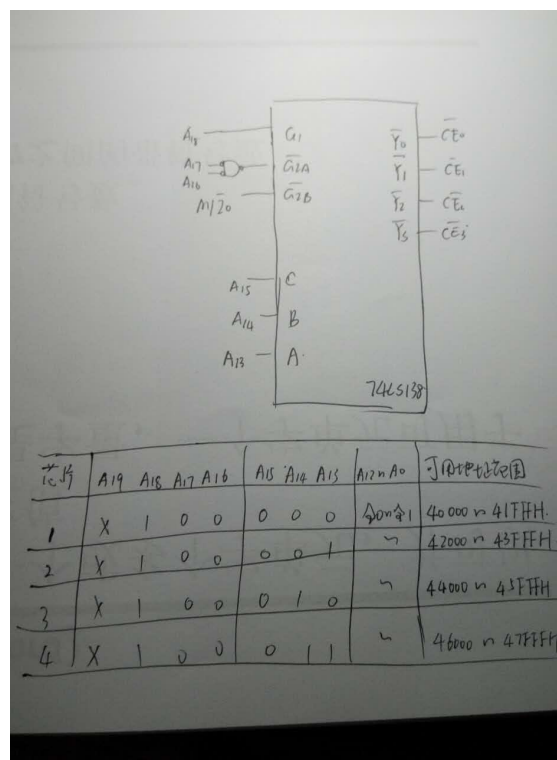 A18 G1 Y̅0 C̅E̅0
A17 G̅2̅A̅ Y̅1 C̅E̅1
A16
M/I̅0 G̅2̅B̅ Y̅2 C̅E̅2
Y̅3 C̅E̅3
A15 C
A14 B
A13 A
74LS138
芯片 A19 A18 A17 A16 A15 A14 A13 A12~A0 可用地址范围
1 X 1 0 0 0 0 0 全0~全1 40000~41FFFH.
2 X 1 0 0 0 0 1 ~ 42000~43FFFH
3 X 1 0 0 0 1 0 ~ 44000~45FFFH
4 X 1 0 0 0 1 1 ~ 46000~47FFFH